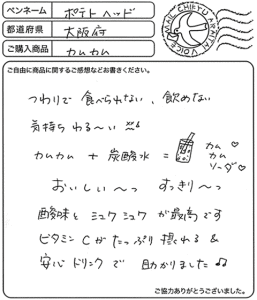 ペンネーム ポテトヘッド
都道府県 大阪府
ご購入商品 カムカム
MAIL CHIEYU ARAITAI VOICE
ご自由に商品に関するご感想などお書きください。
つわりで 食べられない、飲めない
気持ちわる〜い
カムカム + 炭酸水 = カムカムソーダ♡
おいしい〜っ すっきり〜っ
酸味と シュワシュワ が最高です
ビタミンCがたっぷり摂れる &
安心ドリンクで 助かりました♫
ご協力ありがとうございました。